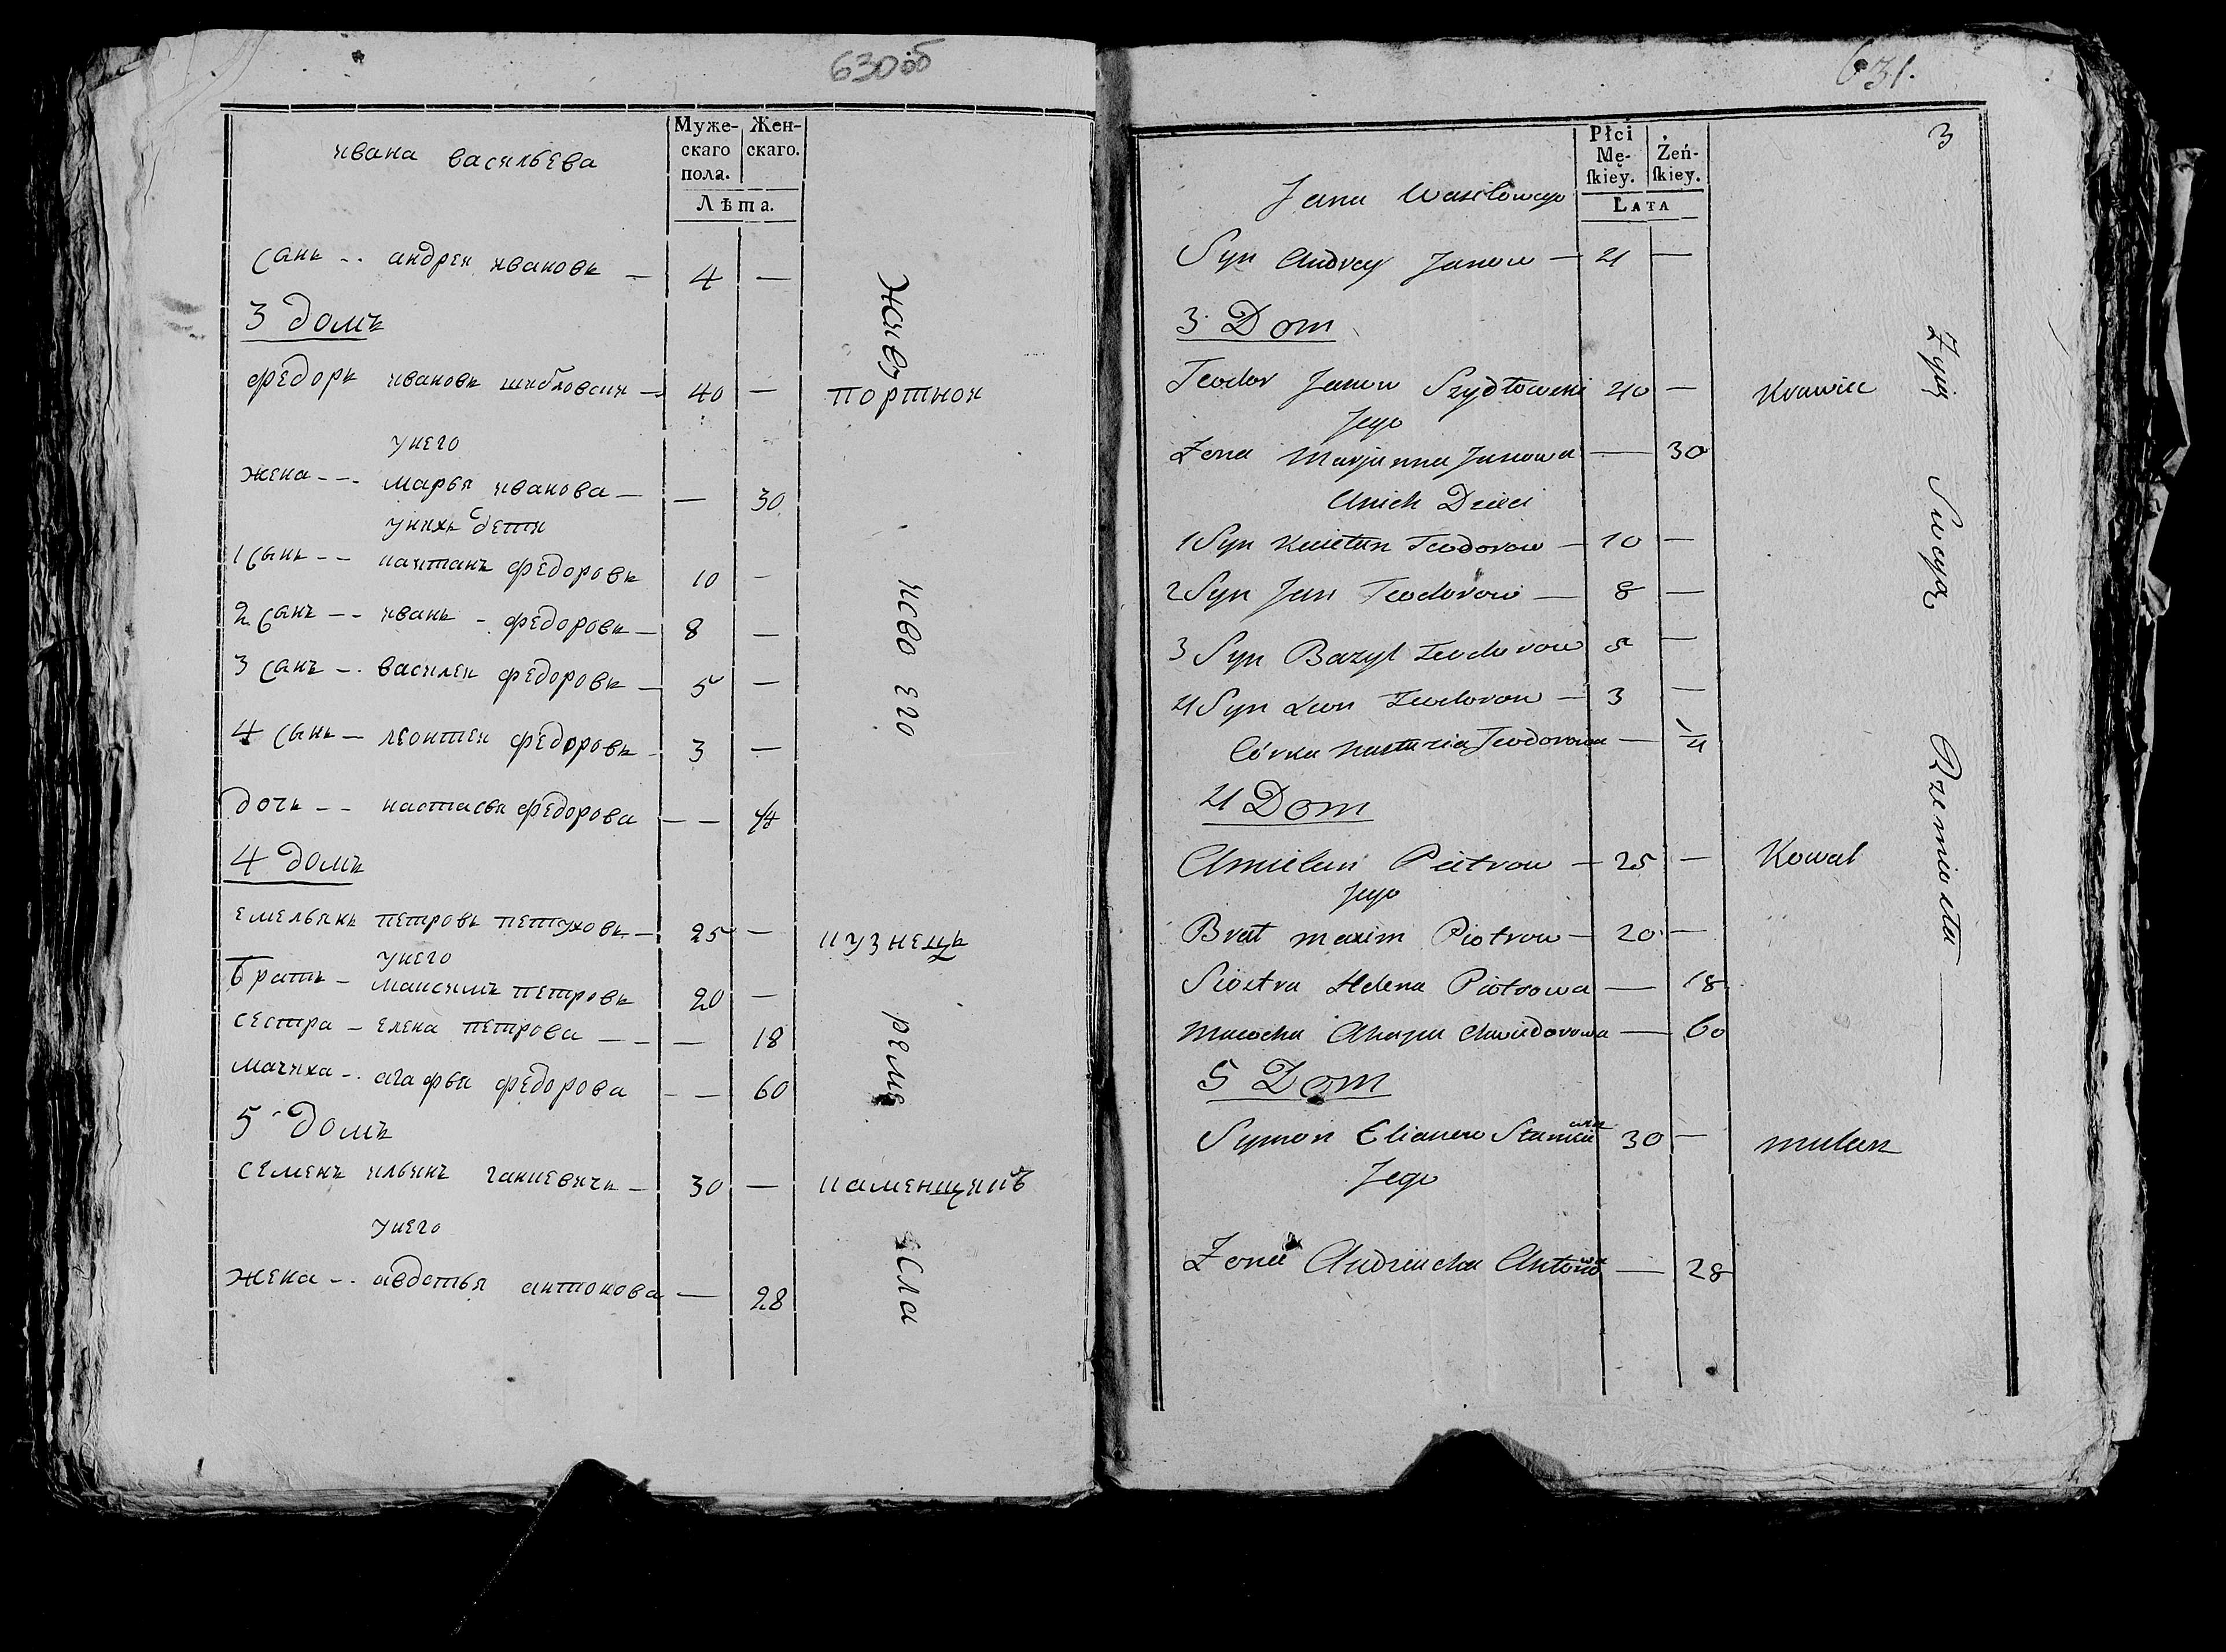 630об
Муже- Жен-
скаго скаго.
пола.
Лѣта.
ивана васильева
сынъ -- андреи ивановъ — 4 —
3 домъ
федоръ ивановъ — 40 — портнои
унего
жена --- марья иванова — — 30
унихъ дети
1 сынъ -- каитанъ федоровъ 10 —
2 сынъ -- иванъ - федоровъ — 8 —
3 сынъ -- василеи федоровъ — 5 —
4 сынъ — леонтеи федоровъ — 3 —
дочь -- настасья федорова — — 1/4
4 домъ
емельянъ петровъ петуховъ — 25 — кузнецъ
унего
братъ — максимъ петровъ 20 —
сестра — елена петрова — — 18
мачиха -- агафья федорова — — 60
5 домъ
семенъ ильинъ — 30 — каменщикъ
унего
жена -- авдотья антонова — 28
живу исво его реме сла
631.
3
Płci Żeń-
Mę- ſkiey.
ſkiey.
Lata
Jana Wasilowego
Syn Andrey Janow — 4 —
3 Dom
Teodor Janow Szydłowski 40 — Krawiec
Jego
Żona Marjanna Janowa — 30
Unich Dzieci
1 Syn Kaietan Teodorow — 10 —
2 Syn Jan Teodorow — 8 —
3 Syn Bazyl Teodorow 5 —
4 Syn Leon Teodorow — 3 —
Córka Nastazia Teodorowa — 1/4
4 Dom
Amielan Pietrow — 25 — Kowal
Jego
Brat Maxim Piotrow — 20 —
Siostra Helena Piotrowa — 18
Macocha — 60
5 Dom
Symon Elianow 30 — mularz
Jego
Żona — 28
Żyią Swoyą Rzemiosła —